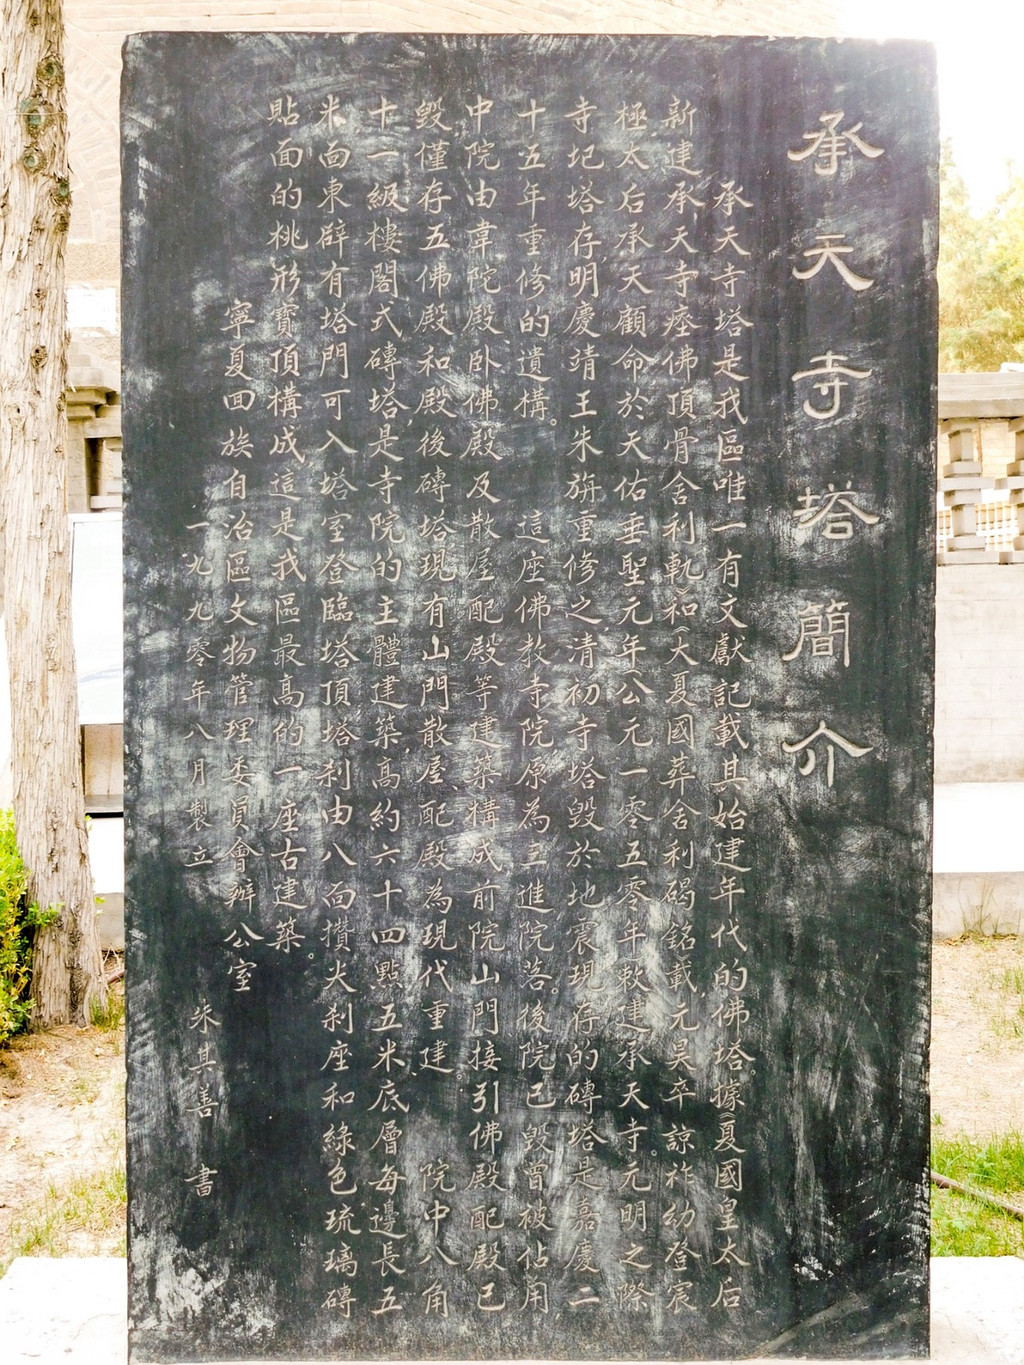 承天寺塔簡介
承天寺塔是我區唯一有文獻記載其始建年代的佛塔。據《夏國皇太后
新建承天寺瘞佛頂骨舍利軌》和《大夏國葬舍利碣銘》載元昊卒諒祚幼登宸
極太后承天顧命於天佑垂聖元年公元一零五零年敕建承天寺。元明之際
寺圮塔存,明慶靖王朱㫋重修之清初寺塔毀於地震現存的磚塔是嘉慶二
十五年重修的遺構。 這座佛教寺院原為三進院落後院已毀曾被佔用
中院由韋陀殿、卧佛殿及散屋配殿等建築構成前院山門接引佛殿配殿已
毀僅存五佛殿和殿後磚塔現有山門散屋、配殿為現代重建。 院中八角
十一級樓閣式磚塔,是寺院的主體建築,高約六十四點五米底層每邊長五
米面東辟有塔門可入塔室登臨塔頂塔刹由八面攢尖刹座和綠色琉璃磚
貼面的桃形寶頂構成這是我區最高的一座古建築。
寧夏回族自治區文物管理委員會辦公室
一九九零年八月製立 朱其善 書